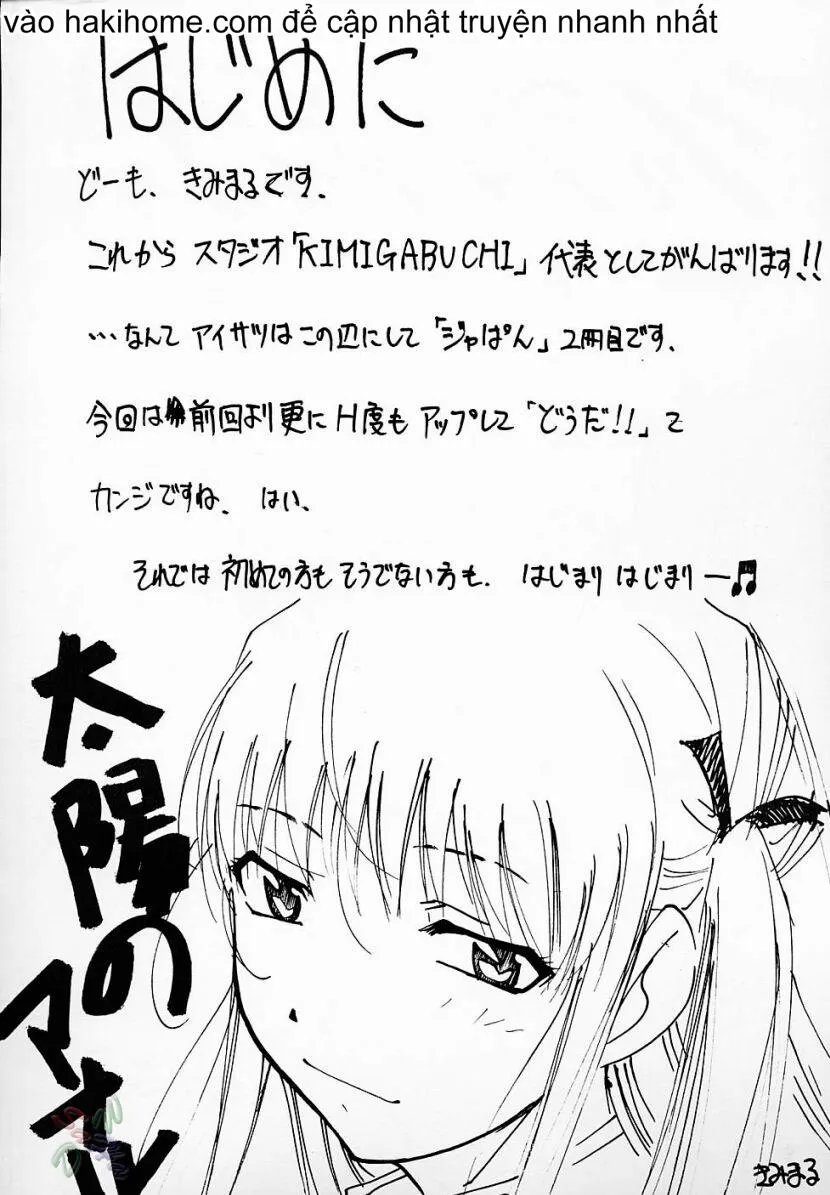 vào hakihome.com để cập nhật truyện nhanh nhất
はじめに
どーも、きみまるです。
これから スタジオ「KIMIGABUCHI」代表としてがんばります!!
…なんて アイサツはこの辺にして「ジャぱん」2冊目です。
今回は前回より更にH度もアップして「どうだ!!」て
カンジですね、はい、
それでは 初めての方もそうでない方も、はじまり はじまりー♫
太陽の
マオル
きみまる